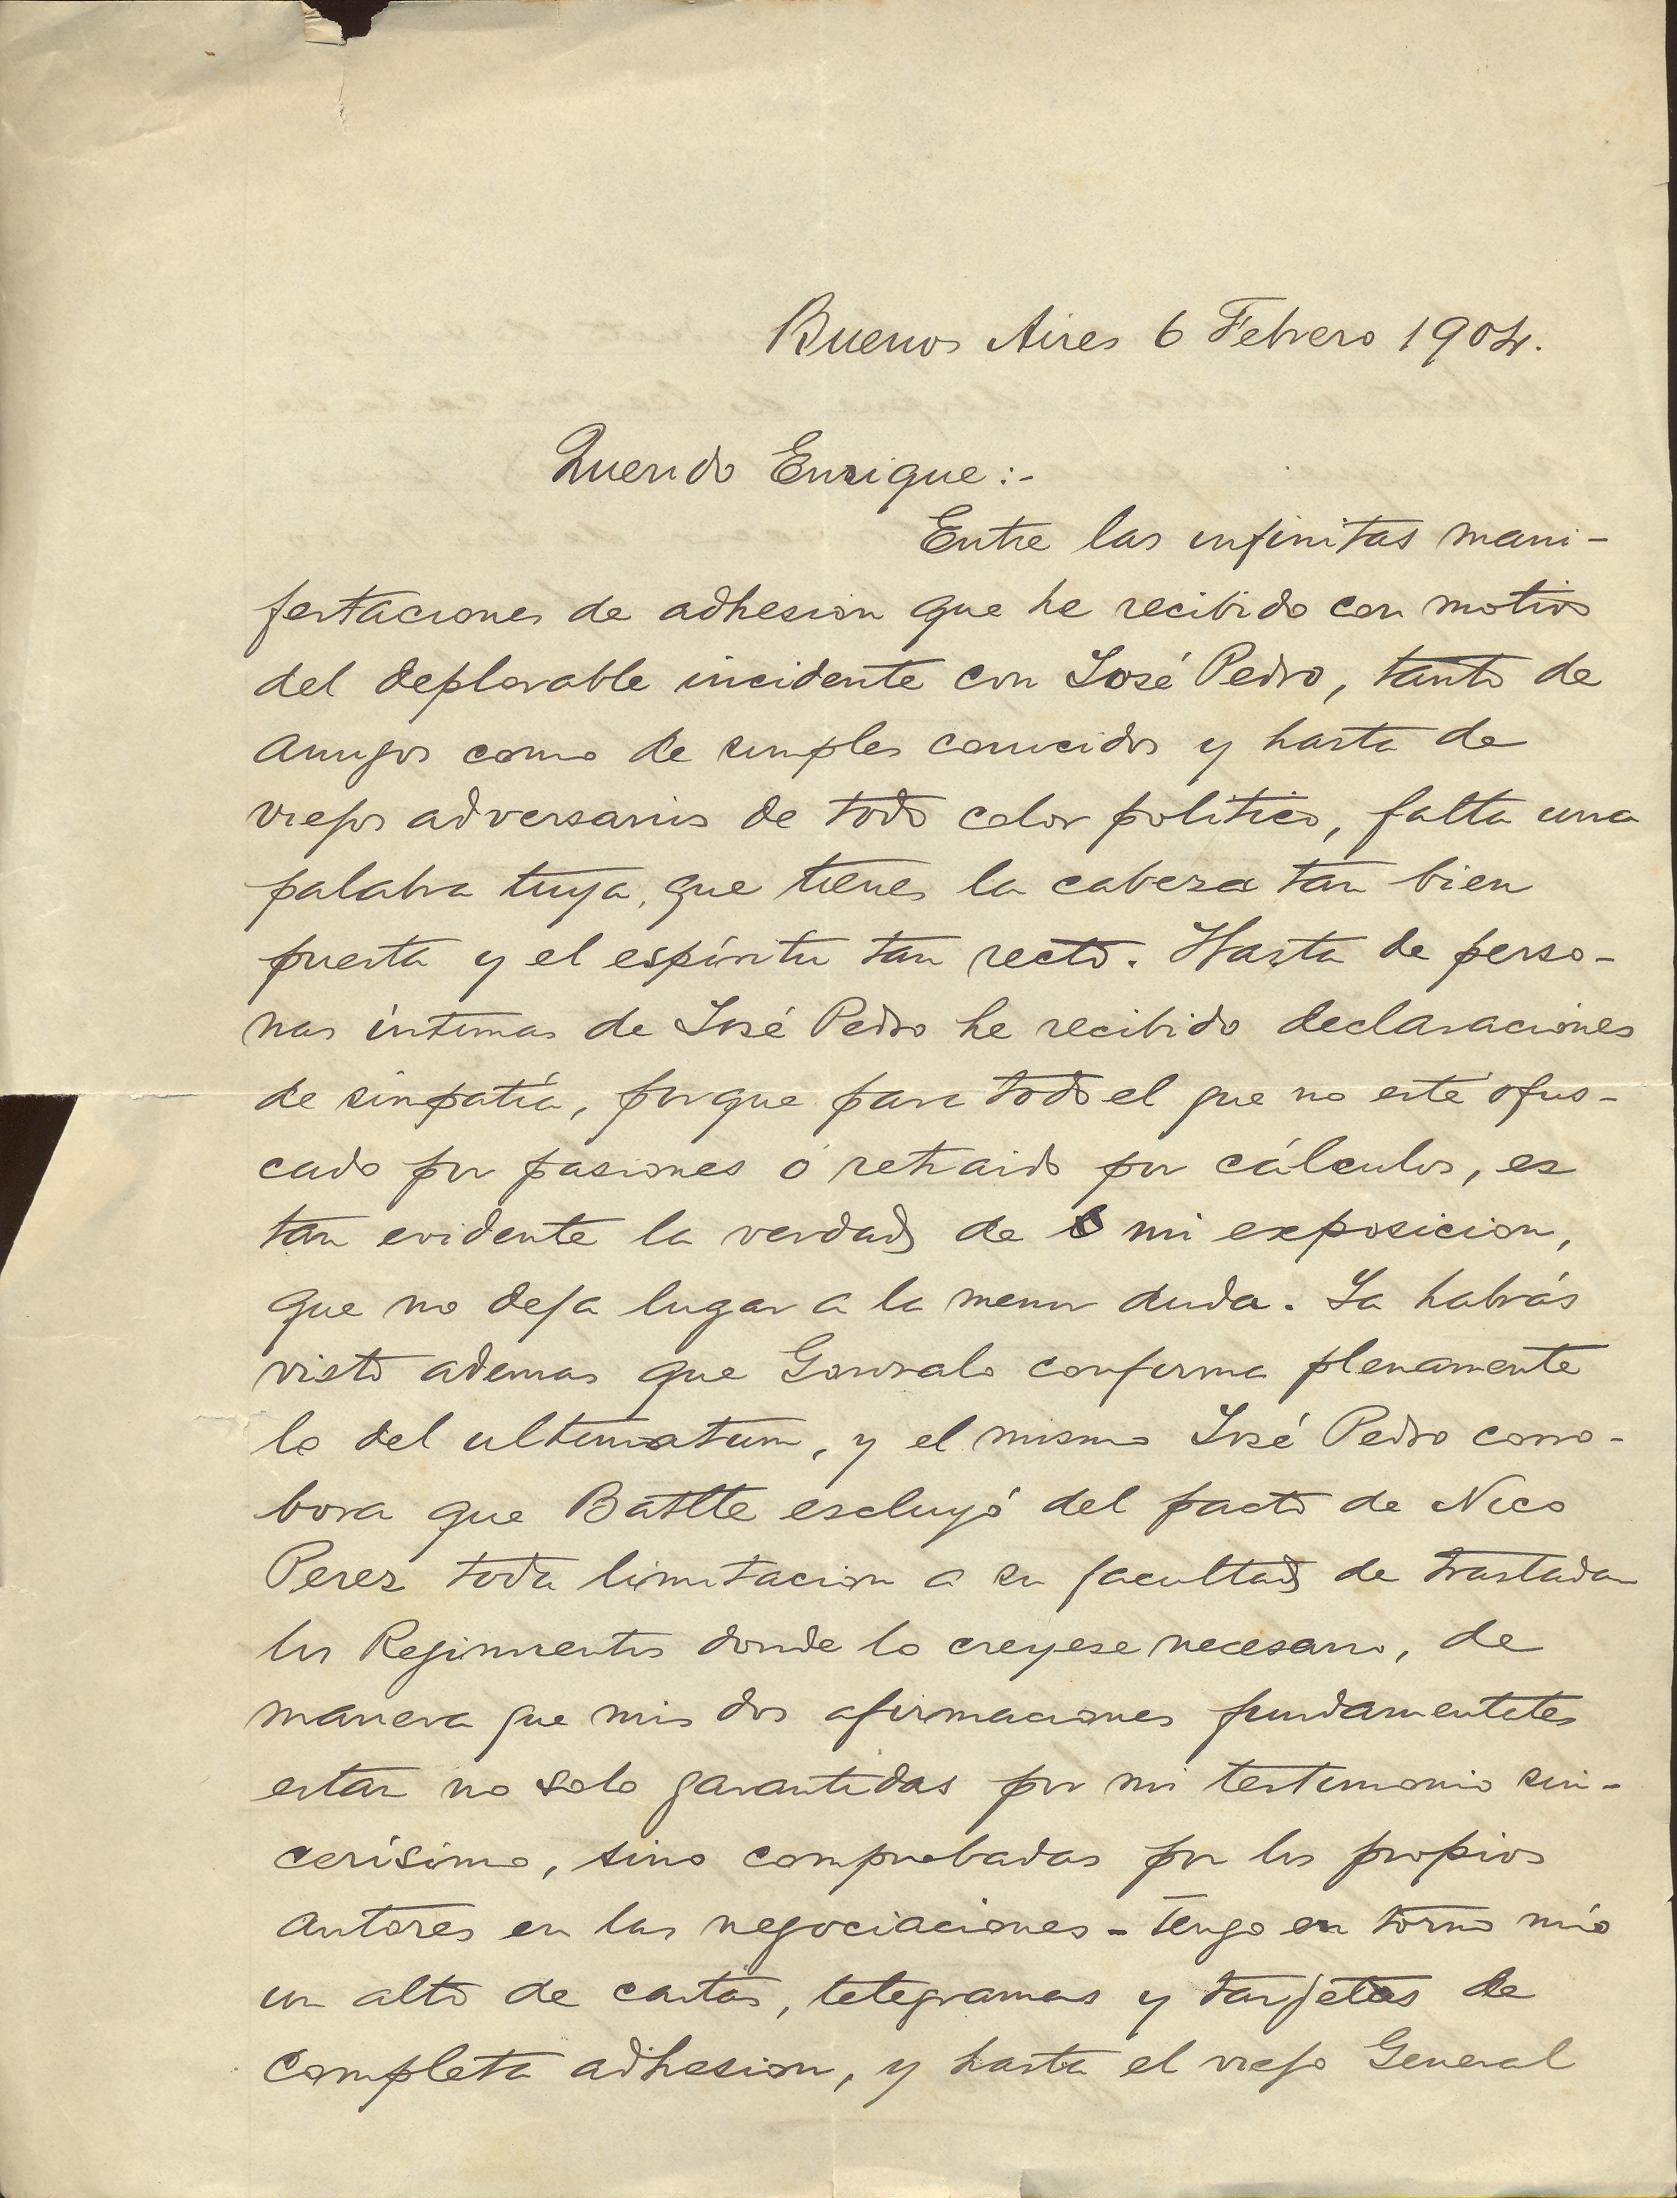 Buenos Aires 6 Febrero 1904.
Querido Enrique:-
Entre las infinitas mani-
festaciones de adhesion que he recibido con motivo
del deplorable incidente con José Pedro, tanto de
amigos como de simples conocidos y hasta de
viejos adversarios de todo color politico, falta una
palabra tuya, que tienes la cabeza tan bien
puesta y el espíritu tan recto. Hasta de perso-
nas íntimas de José Pedro he recibido declaraciones
de simpatía, porque para todo el que no esté ofus-
cado por pasiones ó retraido por cálculos, es
tan evidente la verdad de mi exposicion,
que no deja lugar a la menor duda. Ya habrás
visto ademas que Gonzalo confirma plenamente
lo del ultimatum, y el mismo José Pedro corro-
bora que Batlle escluyó del pacto de Nico
Perez toda limitacion a su facultad de trasladar
los Regimientos donde lo creyese necesario, de
manera que mis dos afirmaciones fundamentales
estan no solo garantidas por mi testimonio sin-
cerísimo, sino comprobadas por los propios
autores en las negociaciones - Tengo en torno mío
un alto de cartas, telegramas y tarjetas de
completa adhesion, y hasta el viejo General